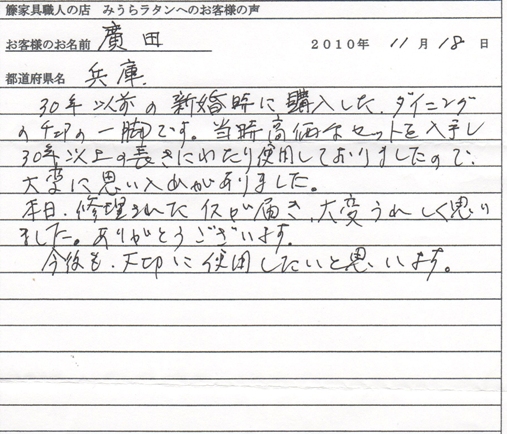 籐家具職人の店 みうらラタンへのお客様の声
お客様のお名前 廣田 2010年 11月 18日
都道府県名 兵庫
30年以前の新婚時に購入した、ダイニング
のチェアの一脚です。当時高価なセットを入手し
30年以上の長きにわたり使用しておりましたので、
大変に思い入れがありました。
本日、修理されたイスが届き、大変うれしく思い
ました。ありがとうございます。
今後も、大切に使用したいと思います。